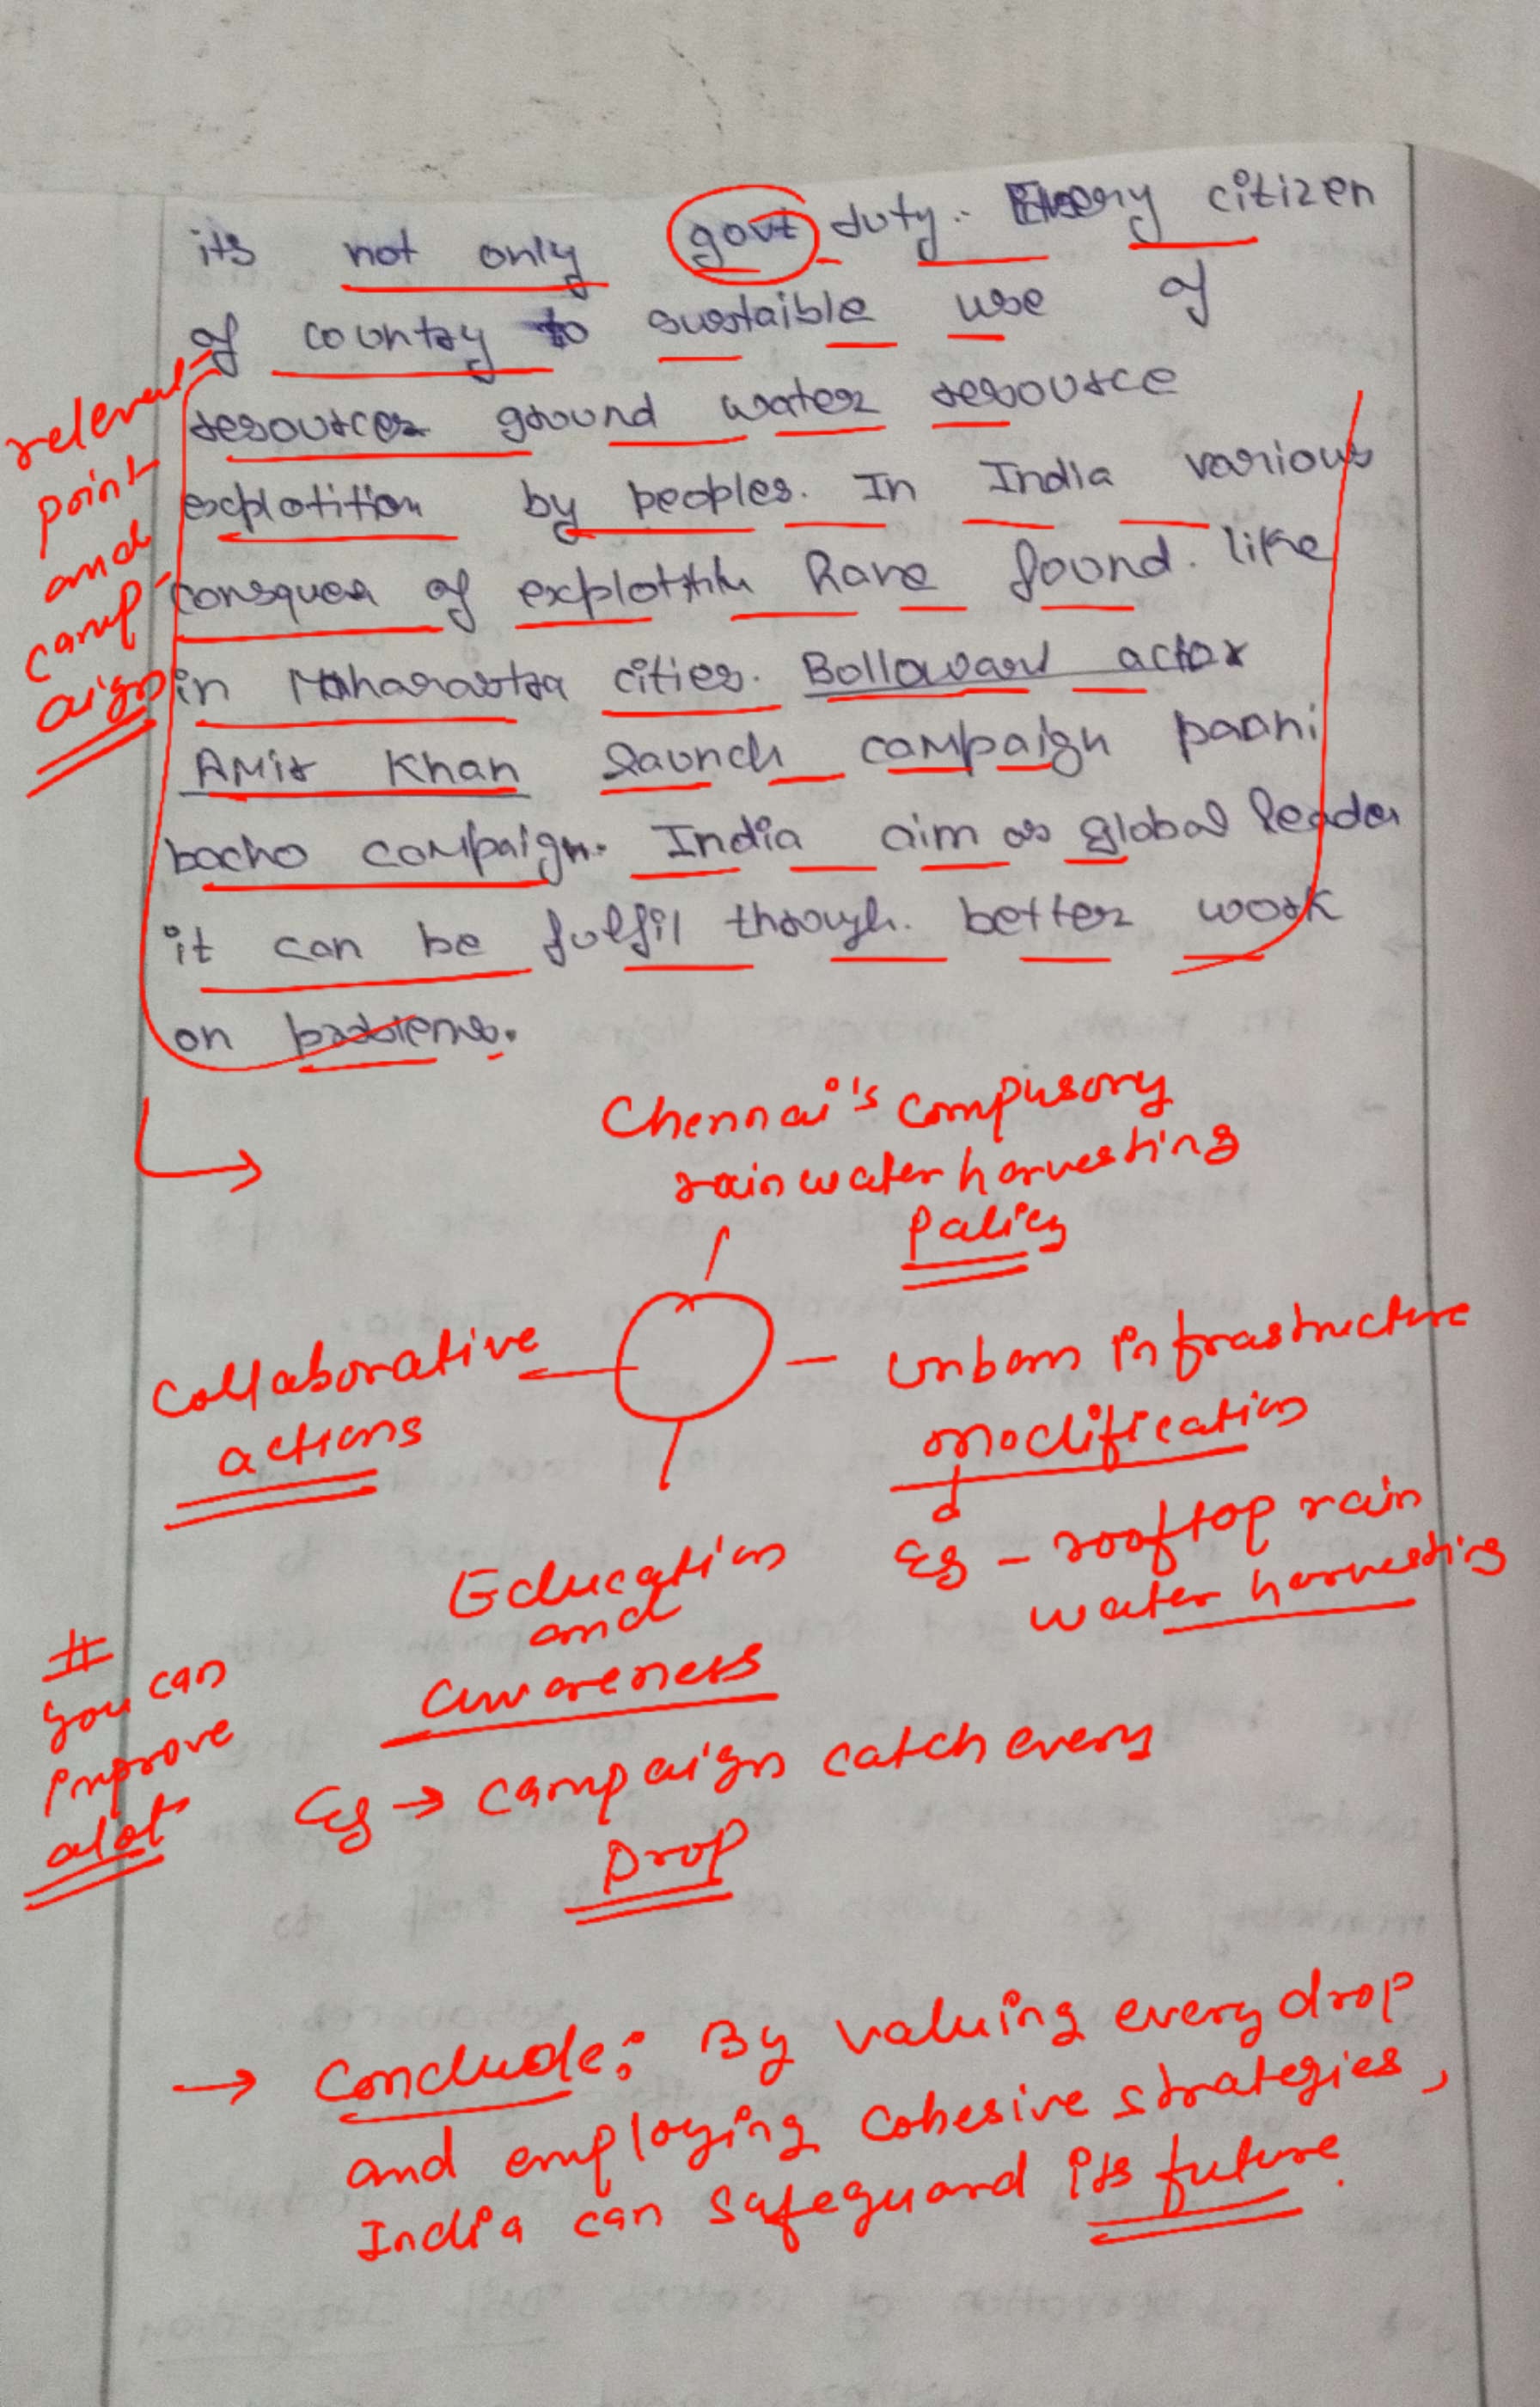 its not only govt duty. Every citizen
of country to sustaible use of
resources ground water resource
explotition by peoples. In India various
consques of explottitn have found. like
in Maharastra cities. Bolloward actor
Amir Khan launch campaign paani
bacho campaign. India aim as global leader
it can be fulfil through. better work
on problems.
relevent
point
and
camp-
aign
Chennai's compusory
rain water harvesting
policy
Collaborative
actions
urban infrastructure
modification
Eg - rooftop rain
water harvesting
Education
and
awareness
Eg → campaign catch every
Drop
#
you can
improve
alot
→ Conclude: By valuing every drop
and employing cohesive strategies,
India can safeguard its future.